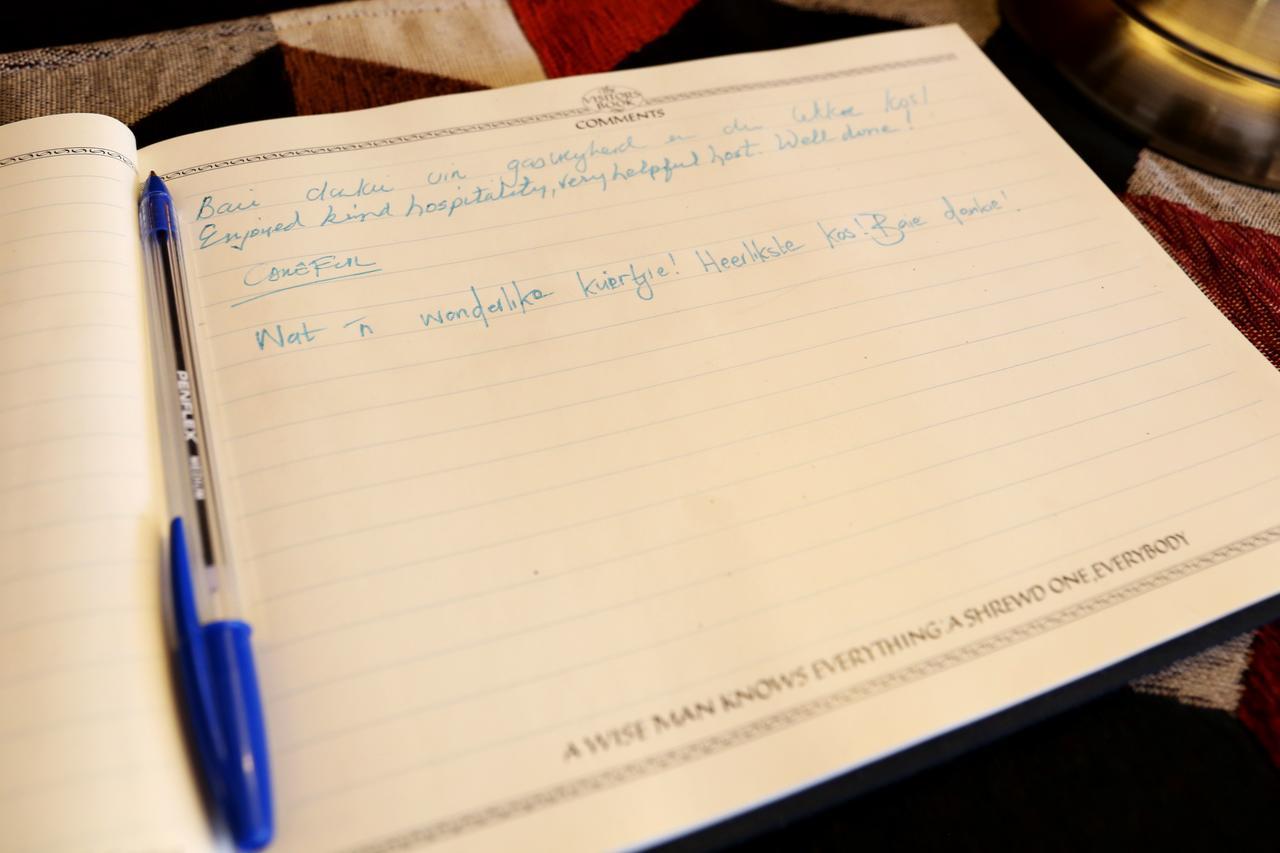 The
VISITORS
BOOK
COMMENTS
Baie dankie vir gasvryheid en die lekker kos!
Enjoyed kind hospitality, very helpful host. Well done!
Wat 'n wonderlike kuiertjie! Heerlikste kos! Baie danke!
PENFLEX MEDIUM
A WISE MAN KNOWS EVERYTHING A SHREWD ONE, EVERYBODY